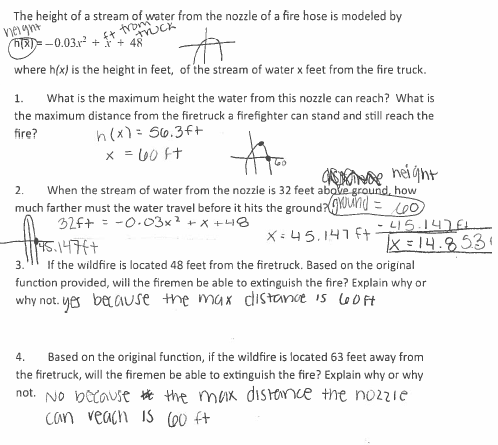 The height of a stream of water from the nozzle of a fire hose is modeled by
height ft from truck
h(x) = -0.03x² + x + 48
where h(x) is the height in feet, of the stream of water x feet from the fire truck.
1. What is the maximum height the water from this nozzle can reach? What is
the maximum distance from the firetruck a firefighter can stand and still reach the
fire? h(x) = 56.3ft
x = 60 ft
60
height
2. When the stream of water from the nozzle is 32 feet above ground, how
much farther must the water travel before it hits the ground? ground = 60
32ft = -0.03x² + x + 48 - 45.147 ft
x = 45.147 ft x = 14.853
45.147ft
3. If the wildfire is located 48 feet from the firetruck. Based on the original
function provided, will the firemen be able to extinguish the fire? Explain why or
why not. yes because the max distance is 60ft
4. Based on the original function, if the wildfire is located 63 feet away from
the firetruck, will the firemen be able to extinguish the fire? Explain why or why
not. No because the max distance the nozzle
can reach is 60 ft